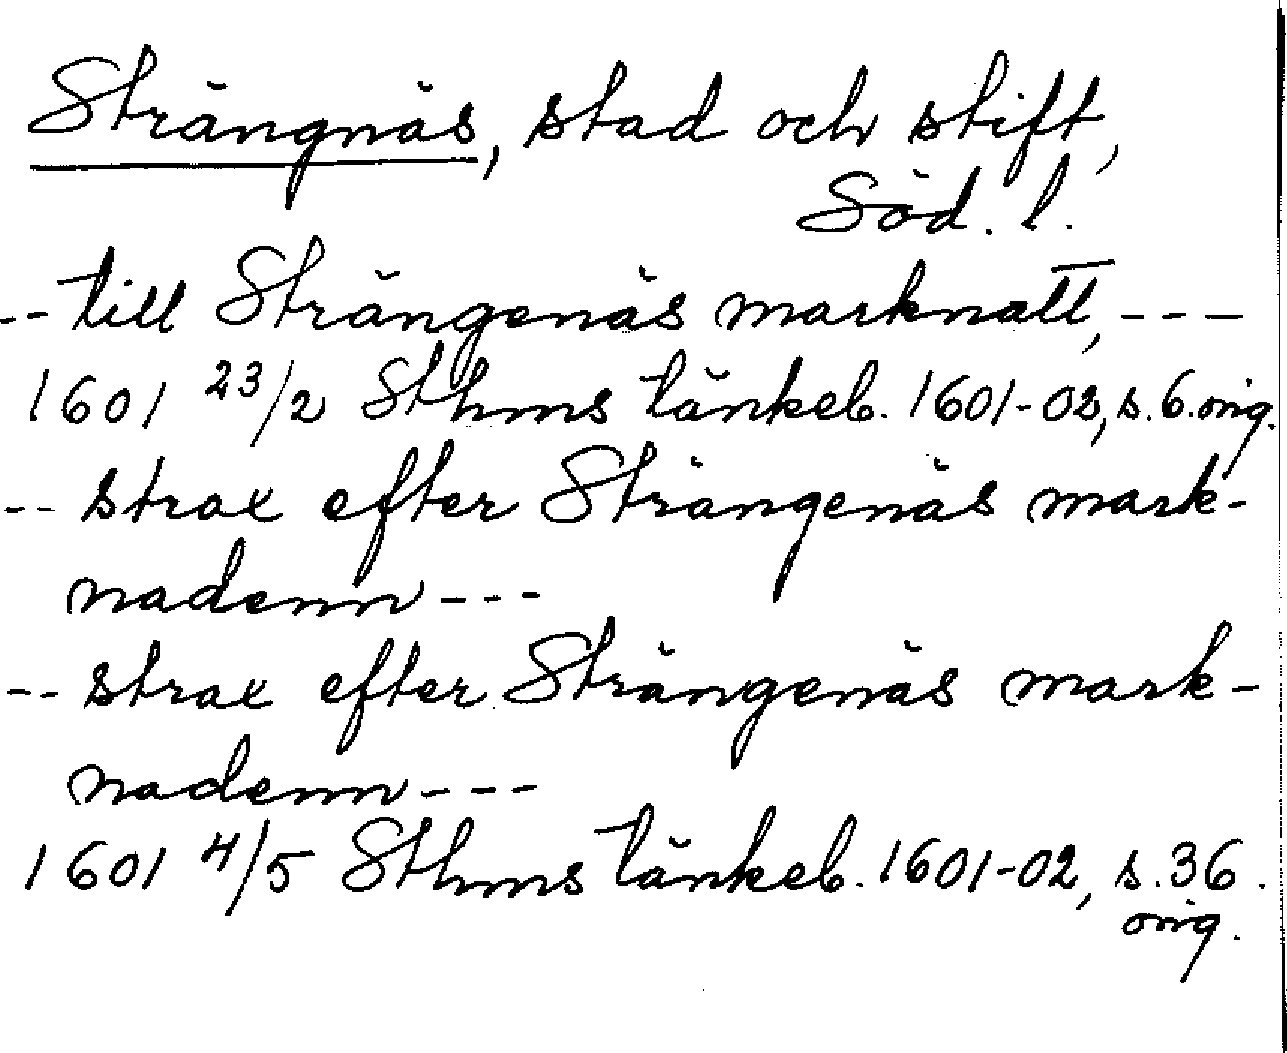 Strängnäs, stad och stift,
Söd. l.
-- till Strängenäs marknatt, ---
1601 23/2 Sthms tänkeb. 1601-02, s. 6. orig.
-- strax efter Strängenäs mark-
nadenn ---
-- strax efter Strängenäs mark-
nadenn ---
1601 4/5 Sthms tänkeb. 1601-02, s. 36.
orig.